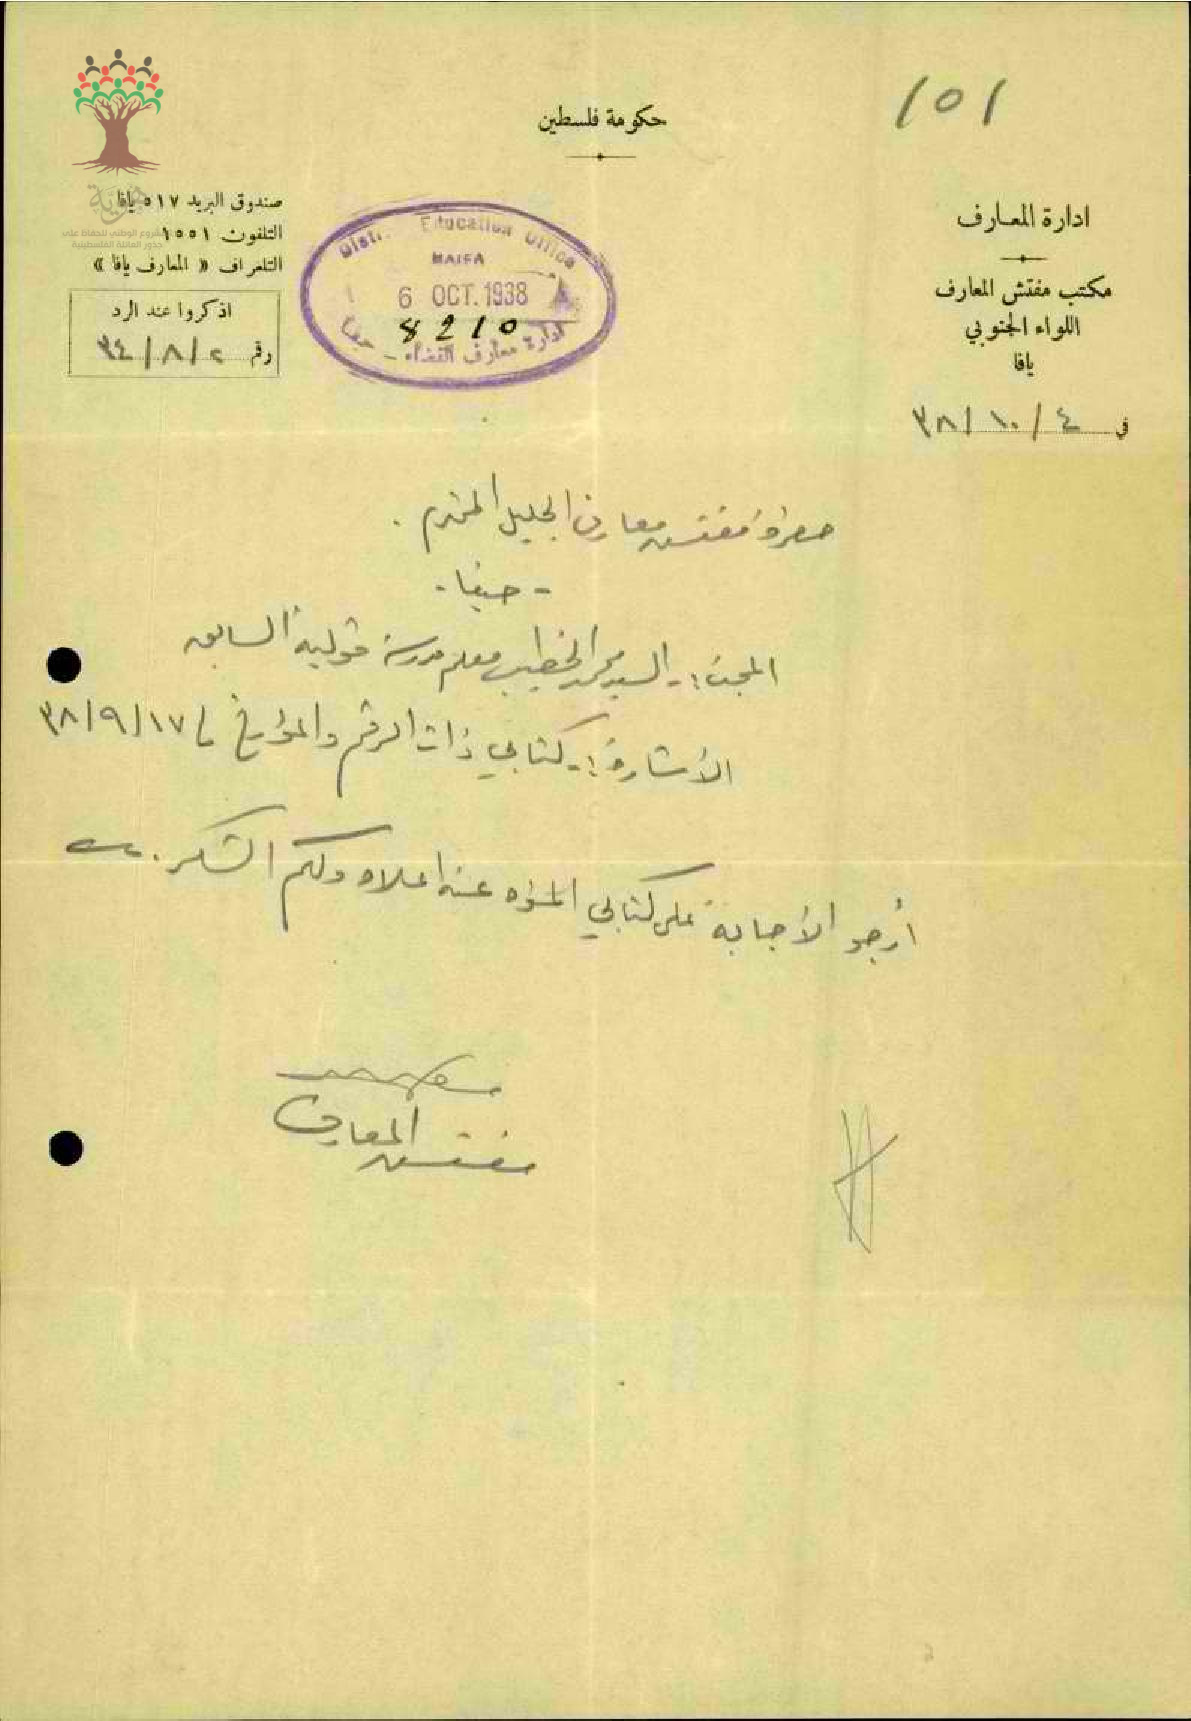 ١٥١
حكومة فلسطين
ادارة المعارف
مكتب مفتش المعارف
اللواء الجنوبي
يافا
في ٤/١٠/٣٨
هوية
المشروع الوطني للحفاظ على
جذور العائلة الفلسطينية
صندوق البريد ٥١٧ يافا
التلفون ١٥٥١
التلغراف « المعارف يافا »
اذكروا عند الرد
رقم ٣٤/٨/٢
District Education Office
HAIFA
6 OCT. 1938
8210
ادارة معارف القضاء - حيفا
حضرة مفتش معارف الجليل المحترم .
- حيفا -
المبحث :- السيد محمد الخطيب معلم مدرسة قولية السابق
الأشارة :- كتابي ذات الرقم والمؤرخ في ١٧/٩/٣٨
أرجو الأجابة على كتابي المنوه عنه اعلاه ولكم الشكر .
مفتش المعارف